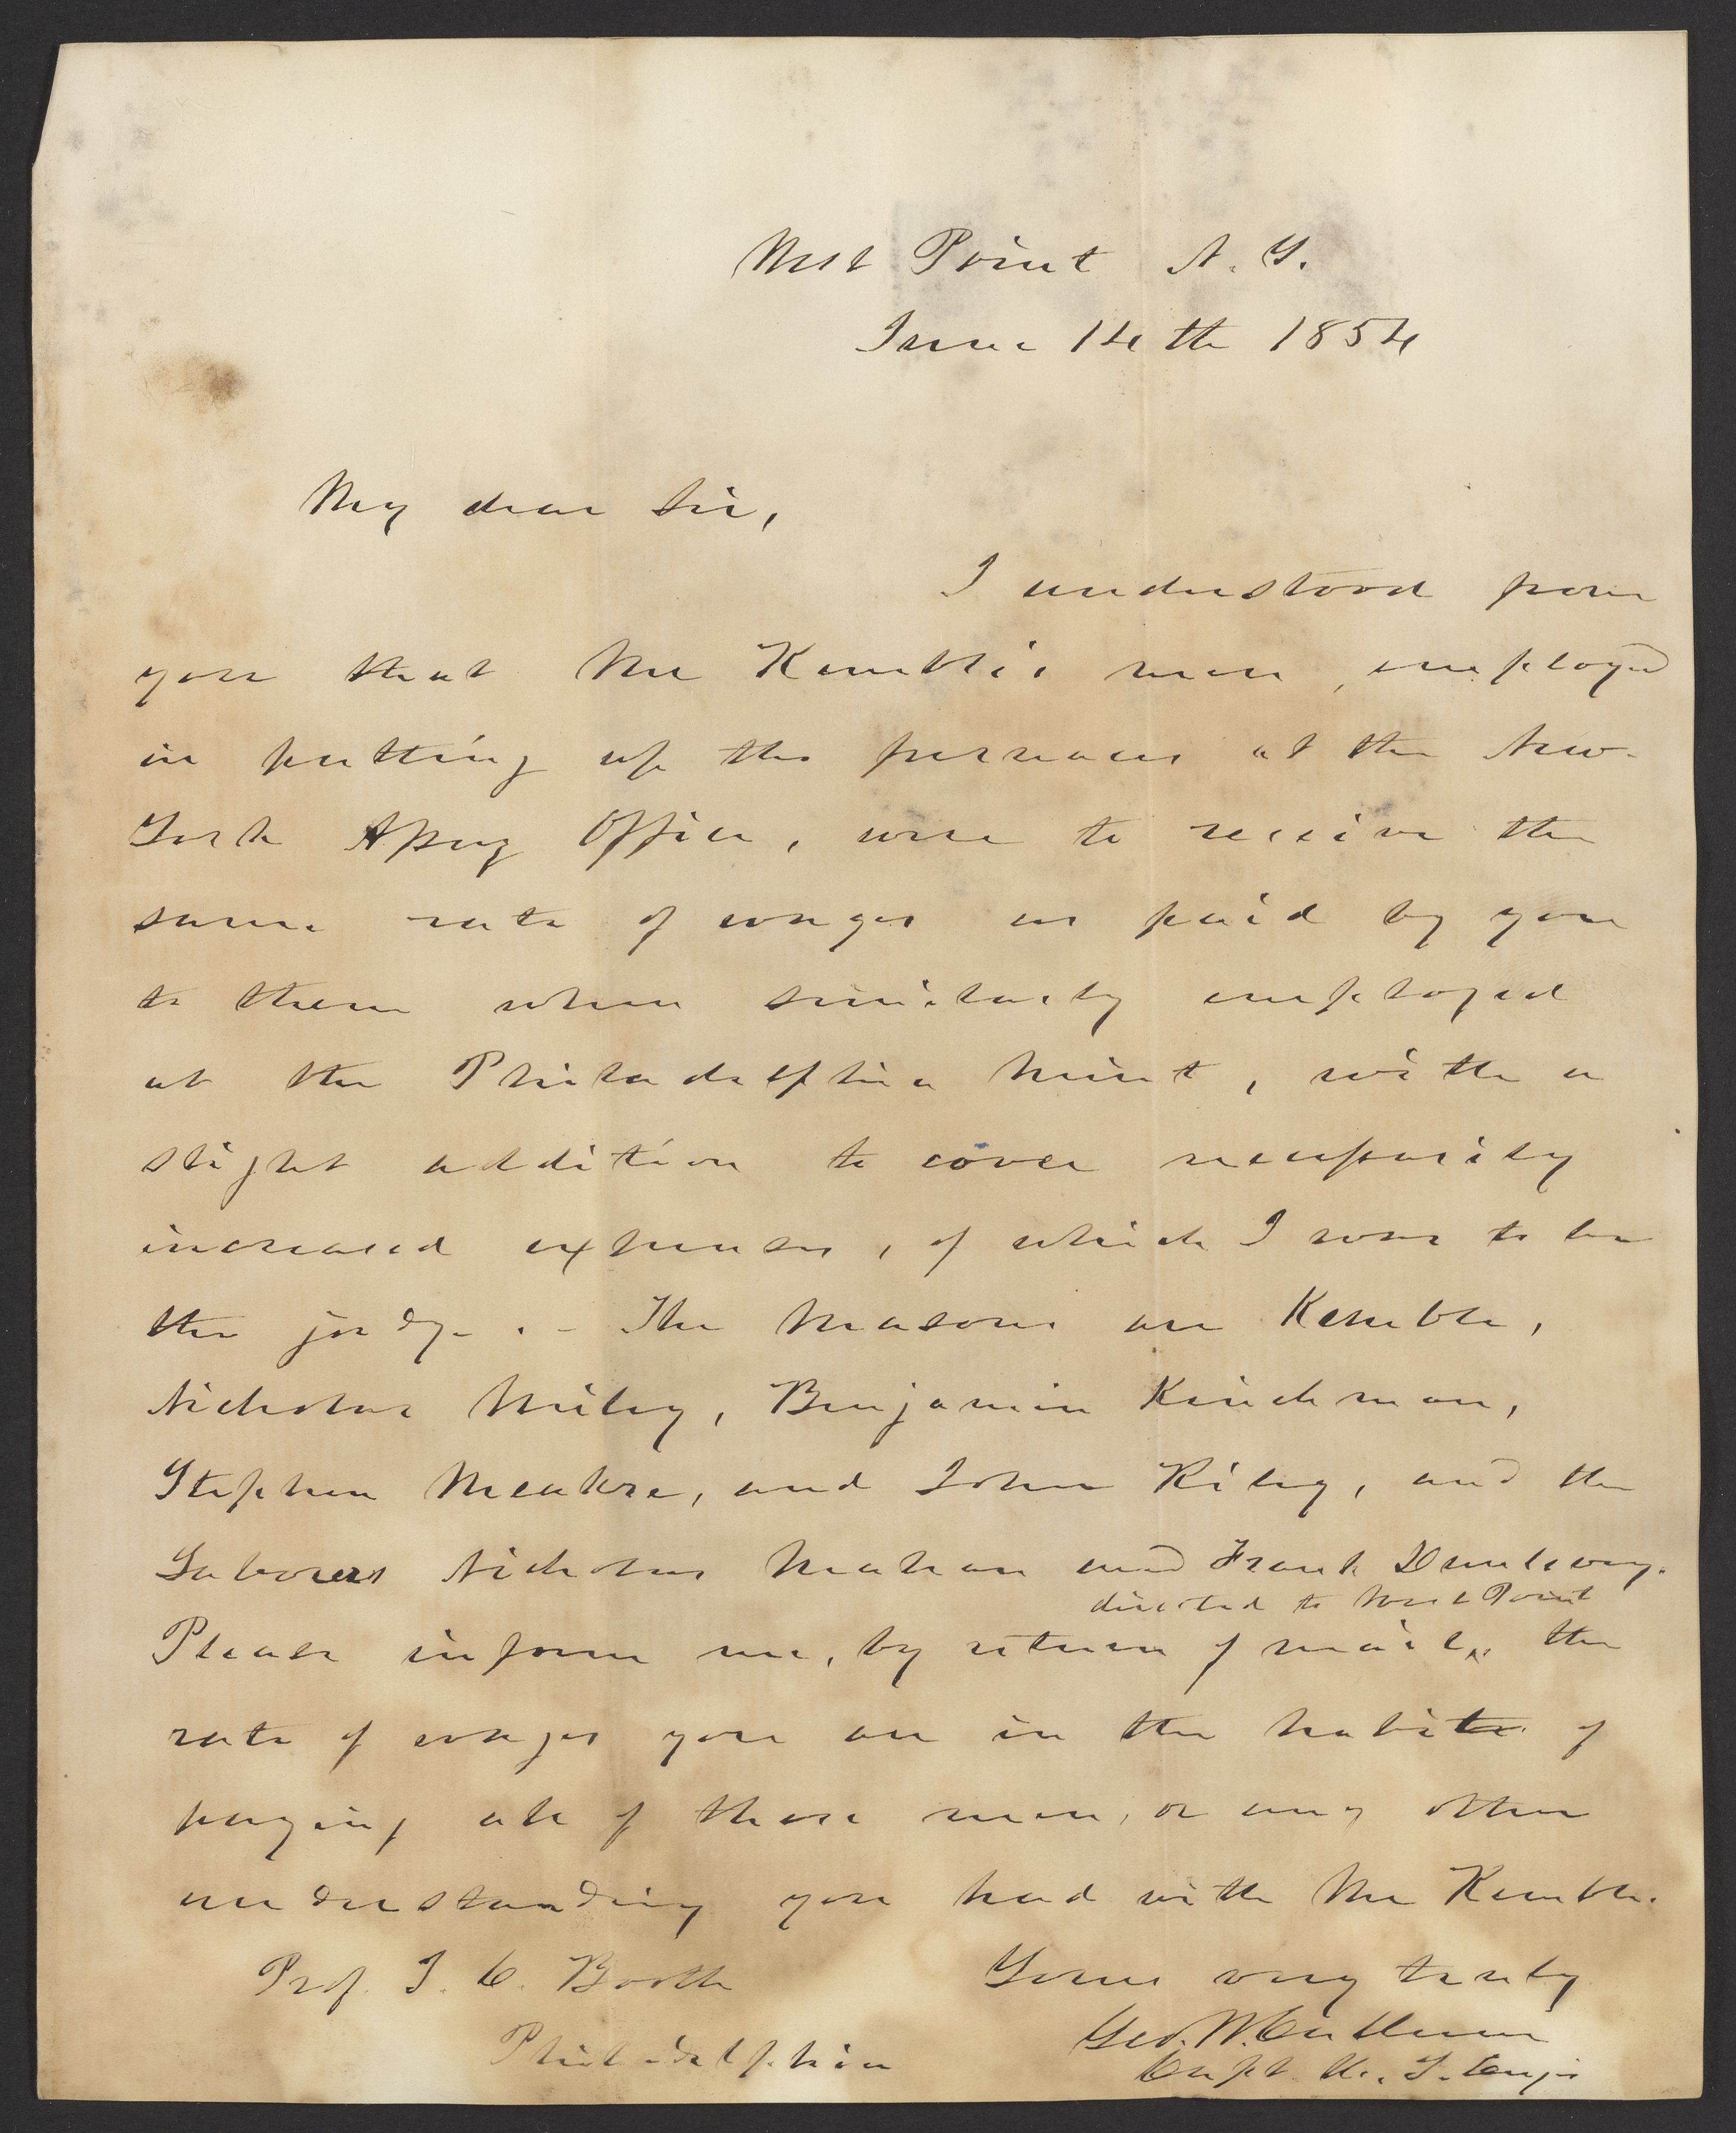 West Point N. Y.
June 14th 1854
My dear Sir,
I understood from
you that Mr Kemble's men, employed
in putting up the furnaces at the New-
York Assay Office, were to receive the
same rate of wages as paid by you
to them when similarly employed
at the Philadelphia Mint, with a
slight addition to cover necessarily
increased expenses, of which I was to be
the judge. - The Masons are Kemble,
Nicholas Miley, Benjamin Hinchman,
Stephen Meakre, and John Riley, and the
Laborers Nicholas Mahan and Frank Dunlevy.
directed to West Point
Please inform me, by return of mail, the
rate of wages you are in the habit of
paying all of these men, or any other
understanding you had with Mr Kemble.
Prof. J. C. Booth
Yours very truly
Philadelphia
Geo. W. Cullum
Capt. U. S. Engrs